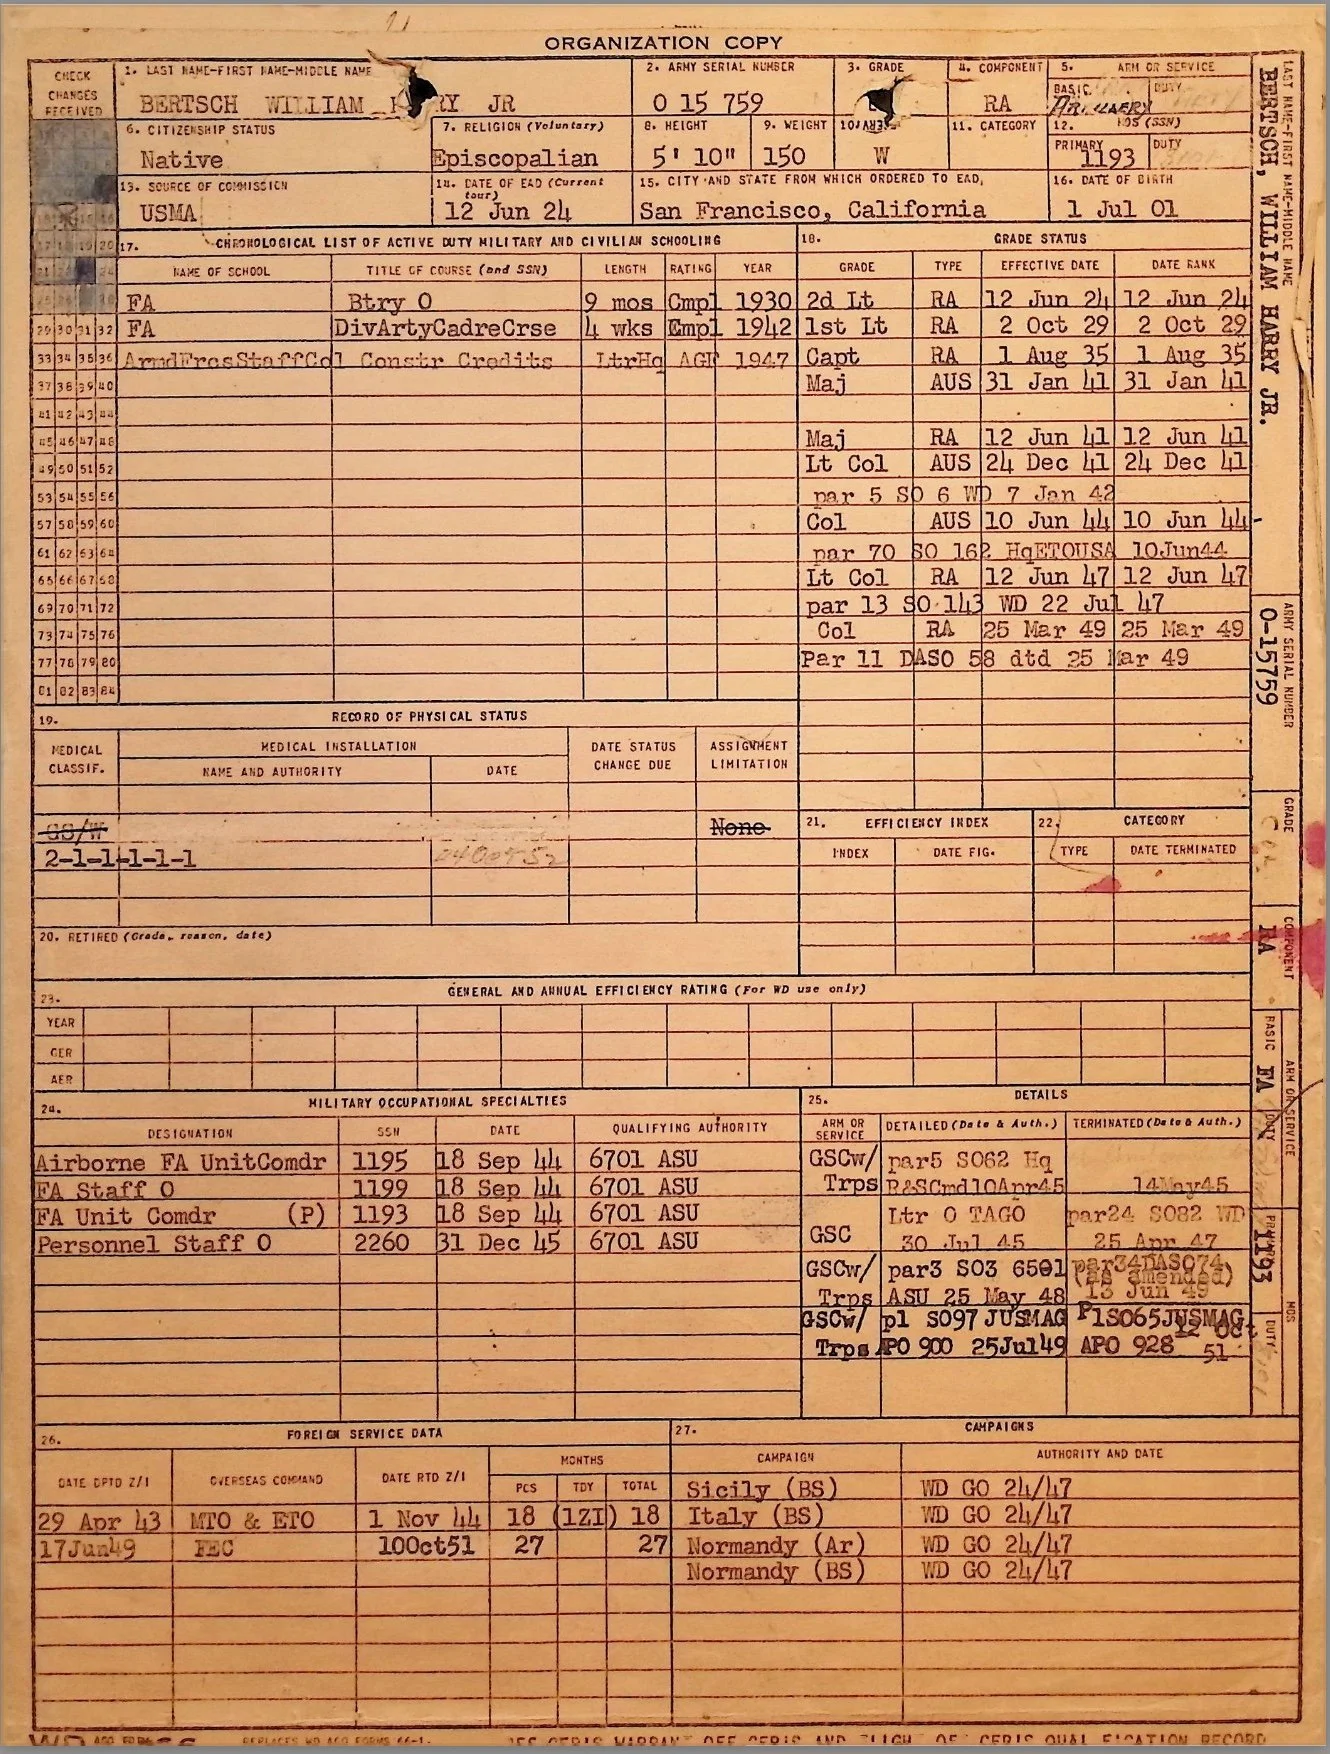 ORGANIZATION COPY
CHECK CHANGES RECEIVED
1. LAST NAME-FIRST NAME-MIDDLE NAME
BERTSCH WILLIAM RY JR
2. ARMY SERIAL NUMBER
O 15 759
3. GRADE
4. COMPONENT
RA
5. ARM OR SERVICE
BASIC
ARTILLERY
DUTY
6. CITIZENSHIP STATUS
Native
7. RELIGION (Voluntary)
Episcopalian
8. HEIGHT
5' 10"
9. WEIGHT
150
10.
W
11. CATEGORY
12. MOS (SSN)
PRIMARY
1193
DUTY
13. SOURCE OF COMMISSION
USMA
14. DATE OF EAD (Current tour)
12 Jun 24
15. CITY AND STATE FROM WHICH ORDERED TO EAD,
San Francisco, California
16. DATE OF BIRTH
1 Jul 01
17. CHRONOLOGICAL LIST OF ACTIVE DUTY MILITARY AND CIVILIAN SCHOOLING
NAME OF SCHOOL TITLE OF COURSE (and SSN) LENGTH RATING YEAR
FA Btry O 9 mos Cmpl 1930
FA DivArtyCadreCrse 4 wks Empl 1942
ArmdFrcsStaffCol Constr Credits LtrHq AGF 1947
29 30 31 32
33 34 35 36
37 38 39 40
41 42 43 44
45 46 47 48
49 50 51 52
53 54 55 56
57 58 59 60
61 62 63 64
65 66 67 68
69 70 71 72
73 74 75 76
77 78 79 80
81 82 83 84
18. GRADE STATUS
GRADE TYPE EFFECTIVE DATE DATE RANK
2d Lt RA 12 Jun 24 12 Jun 24
1st Lt RA 2 Oct 29 2 Oct 29
Capt RA 1 Aug 35 1 Aug 35
Maj AUS 31 Jan 41 31 Jan 41
Maj RA 12 Jun 41 12 Jun 41
Lt Col AUS 24 Dec 41 24 Dec 41
par 5 SO 6 WD 7 Jan 42
Col AUS 10 Jun 44 10 Jun 44
par 70 SO 162 HqETOUSA 10Jun44
Lt Col RA 12 Jun 47 12 Jun 47
par 13 SO 143 WD 22 Jul 47
Col RA 25 Mar 49 25 Mar 49
Par 11 DASO 58 dtd 25 Mar 49
19. RECORD OF PHYSICAL STATUS
MEDICAL CLASSIF.
MEDICAL INSTALLATION
NAME AND AUTHORITY DATE
DATE STATUS CHANGE DUE
ASSIGNMENT LIMITATION
GS/W None
2-1-1-1-1-1
20. RETIRED (Grade, reason, date)
21. EFFICIENCY INDEX
INDEX DATE FIG.
22. CATEGORY
TYPE DATE TERMINATED
23. GENERAL AND ANNUAL EFFICIENCY RATING (For WD use only)
YEAR
GER
AER
24. MILITARY OCCUPATIONAL SPECIALTIES
DESIGNATION SSN DATE QUALIFYING AUTHORITY
Airborne FA UnitComdr 1195 18 Sep 44 6701 ASU
FA Staff O 1199 18 Sep 44 6701 ASU
FA Unit Comdr (P) 1193 18 Sep 44 6701 ASU
Personnel Staff O 2260 31 Dec 45 6701 ASU
25. DETAILS
ARM OR SERVICE DETAILED (Date & Auth.) TERMINATED (Date & Auth.)
GSCw/ par5 SO62 Hq
Trps R&SCmd10Apr45 14May45
Ltr O TAGO par24 SO82 WD
GSC 30 Jul 45 25 Apr 47
GSCw/ par3 SO3 6501 par34DASO74 (as amended)
Trps ASU 25 May 48 13 Jun 49
GSCw/ p1 SO97 JUSMAG P1SO65JUSMAG
Trps APO 900 25Jul49 APO 928 12 Oct 51
26. FOREIGN SERVICE DATA
DATE DPTD Z/I OVERSEAS COMMAND DATE RTD Z/I MONTHS
PCS TDY TOTAL
29 Apr 43 MTO & ETO 1 Nov 44 18 (1ZI) 18
17Jun49 FEC 10Oct51 27 27
27. CAMPAIGNS
CAMPAIGN AUTHORITY AND DATE
Sicily (BS) WD GO 24/47
Italy (BS) WD GO 24/47
Normandy (Ar) WD GO 24/47
Normandy (BS) WD GO 24/47
LAST NAME-FIRST NAME-MIDDLE NAME
BERTSCH, WILLIAM HARRY JR.
ARMY SERIAL NUMBER
O-15759
GRADE
Col
COMPONENT
RA
ARM OR SERVICE
BASIC
FA
DUTY
MOS
PRIMARY
1193
DUTY